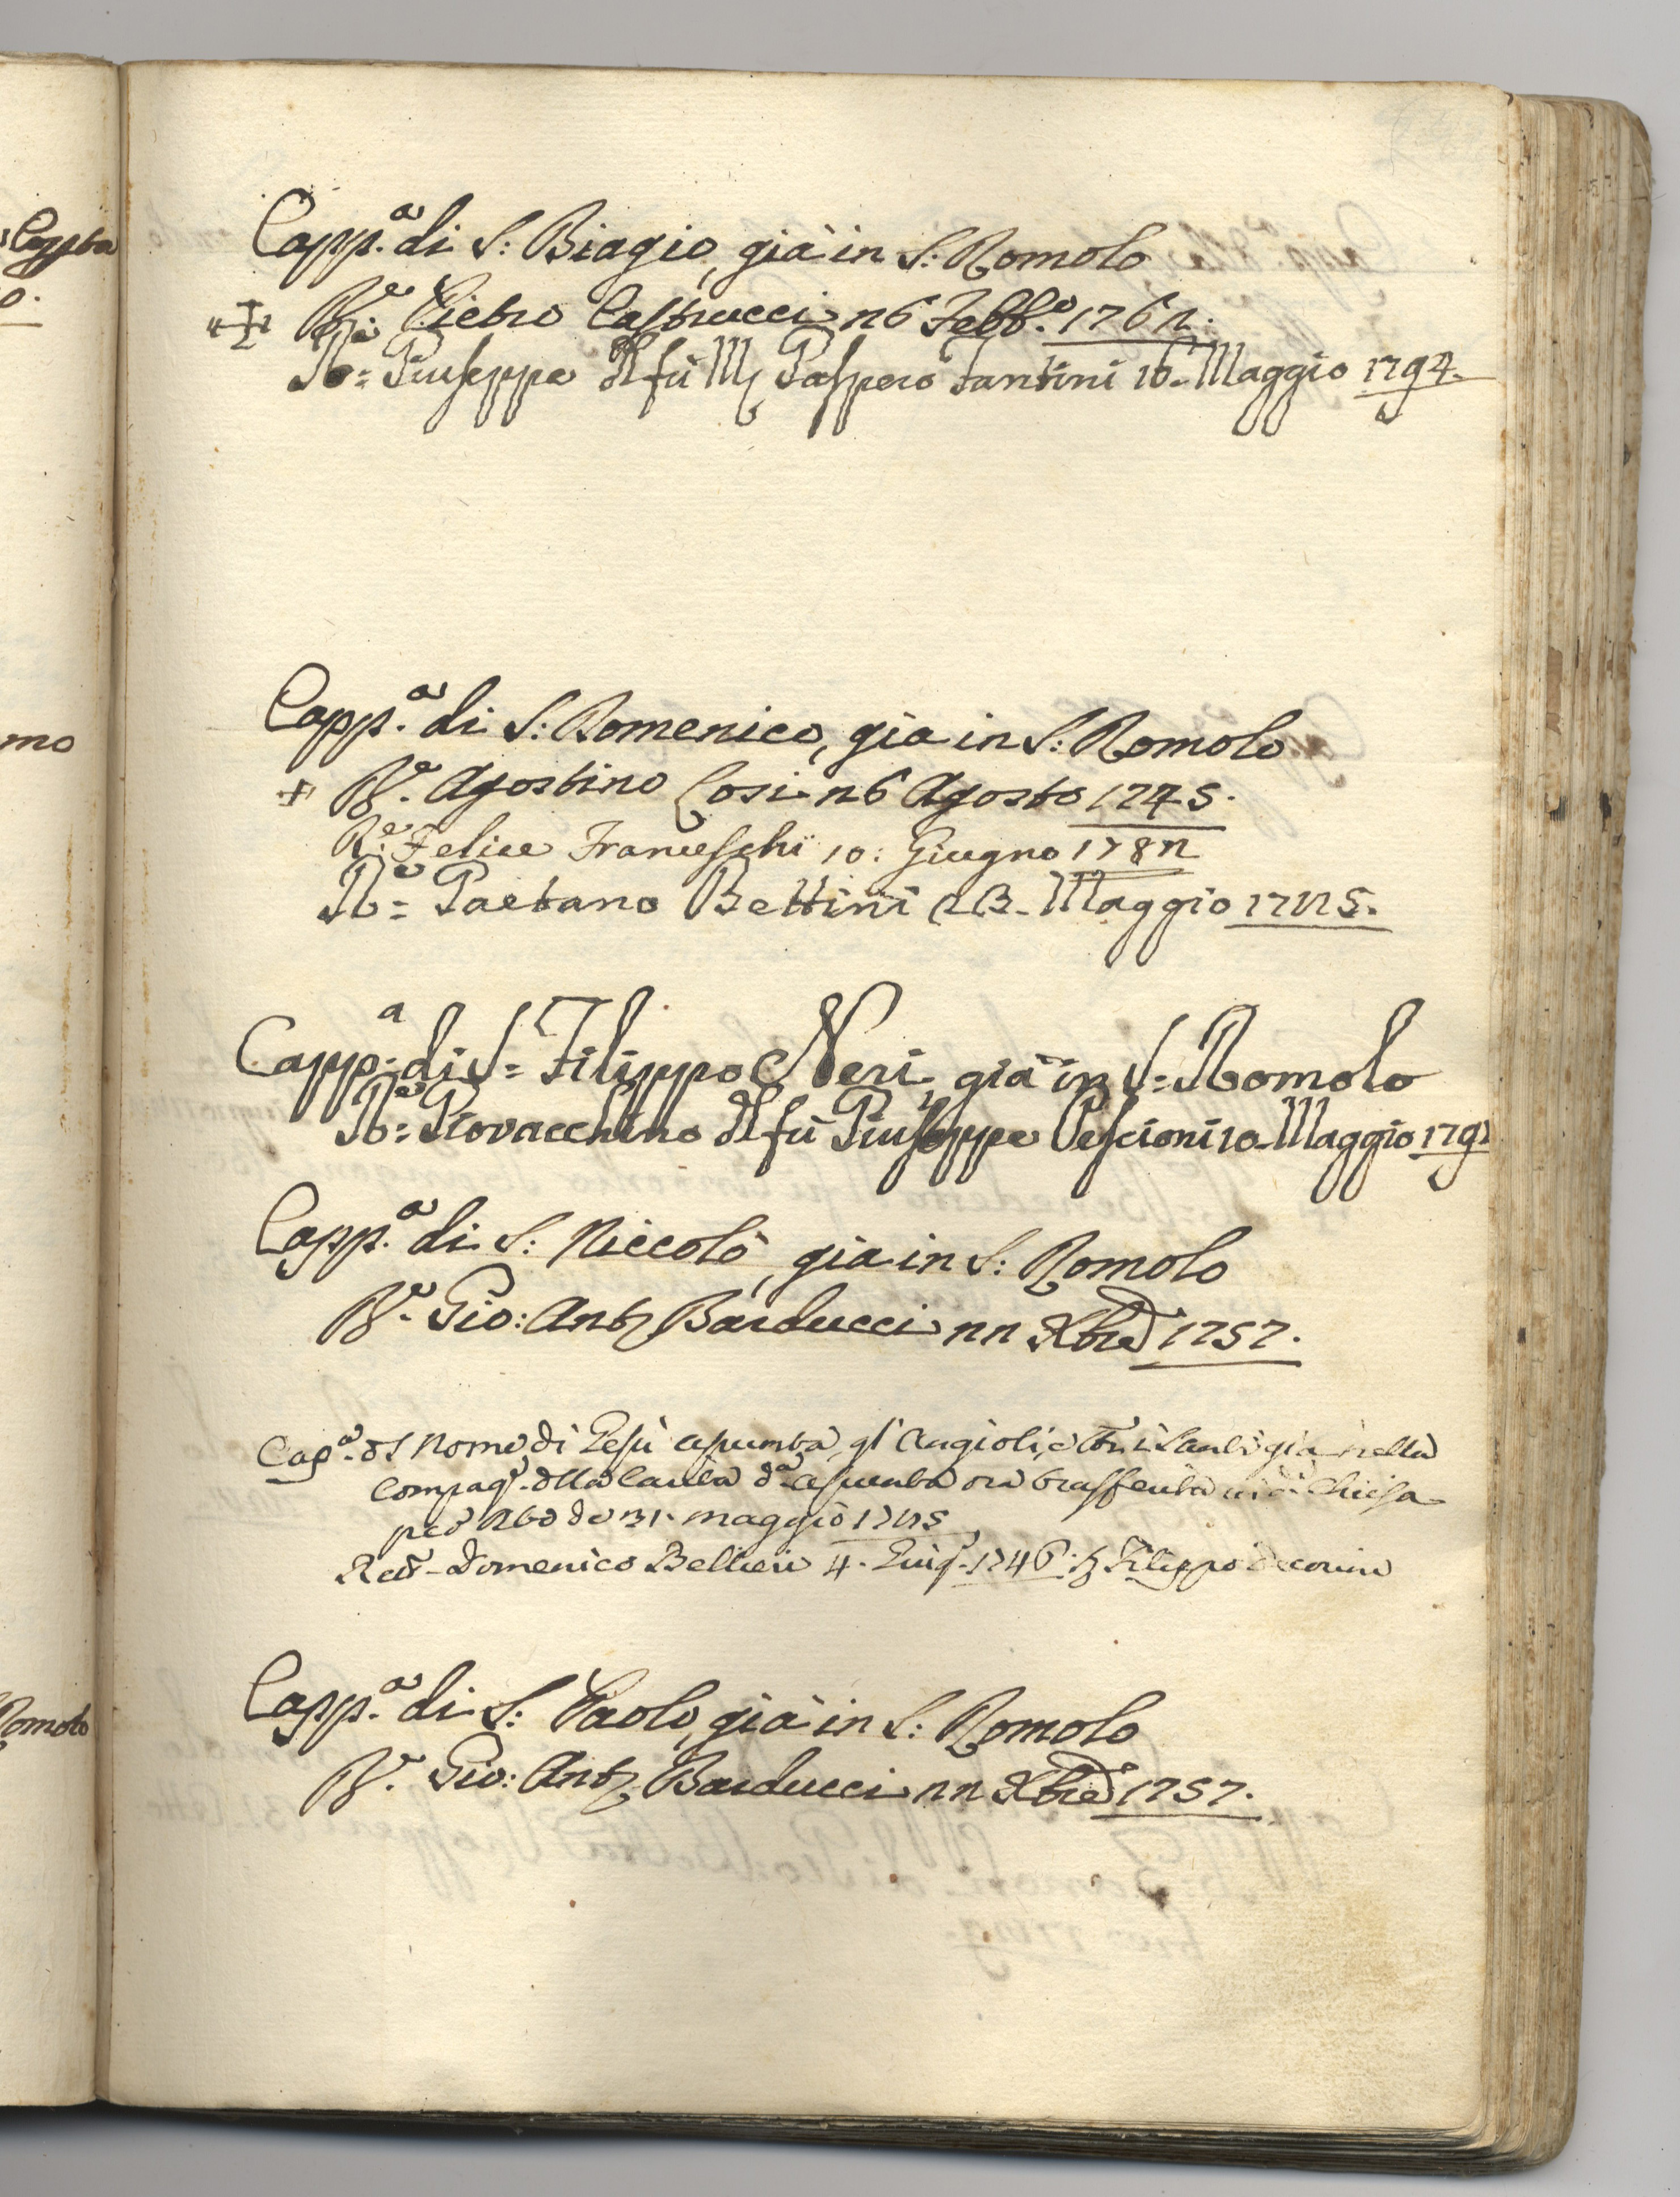 Capp.ª di S: Biagio, già in S: Romolo
R.e Pietro Castrucci 26 Febb.o 1762.
R.e= Giuseppe del fù Gaspero Fantini 16. Maggio 1794.
Capp.ª di S: Domenico, già in S: Romolo
R.e Agostino Cosi 26 Agosto 1745.
R.e Felice Franceschi 10: Giugno 1782
R.e= Gaetano Bettini 23. Maggio 1785.
Capp.ª di S= Filippo Neri, già in S= Romolo
R.e= Giovacchino del fù Giuseppe Pescioni 10. Maggio 179
Capp.ª di S: Niccolò, già in S: Romolo
R.e Gio: Ant.o Barducci 22 Xbre 1757.
Cap.ª del Nome di Gesù assunta, gl'Angioli, e Santi già nella
Compag.a della Santa d.a assunta ora trasferita in d.a Chiesa
maggio 1785
Domenico Bellieri 4. Giug. 1746. Filippo
Capp.ª di S: Paolo, già in S: Romolo
R.e Gio: Ant.o Barducci 22 Xbre 1757.
Romolo
mo